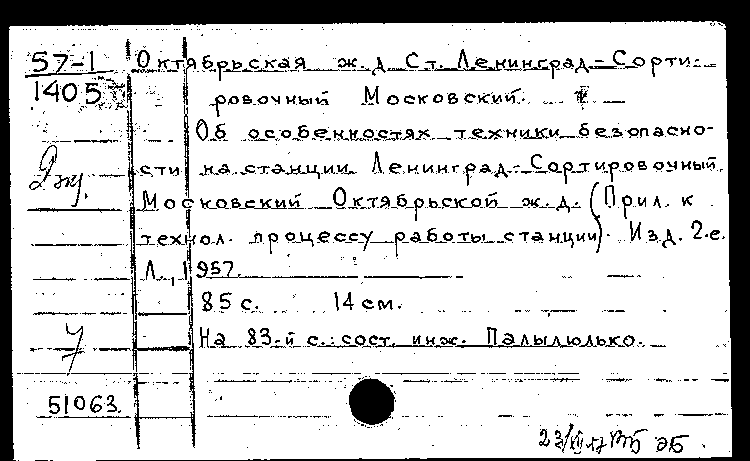 57-1
1405
Октябрьская ж.д. Ст. Ленинград-Сорти-
ровочный Московский.
Об особенностях техники безопасно-
сти на станции Ленинград-Сортировочный
Московский Октябрьской ж.д. (Прил. к
технол. процессу работы станции). Изд. 2-е.
Л., 1957.
85 с. 14 см.
На 83-й с.: сост. инж. Палылюлько.
51063.